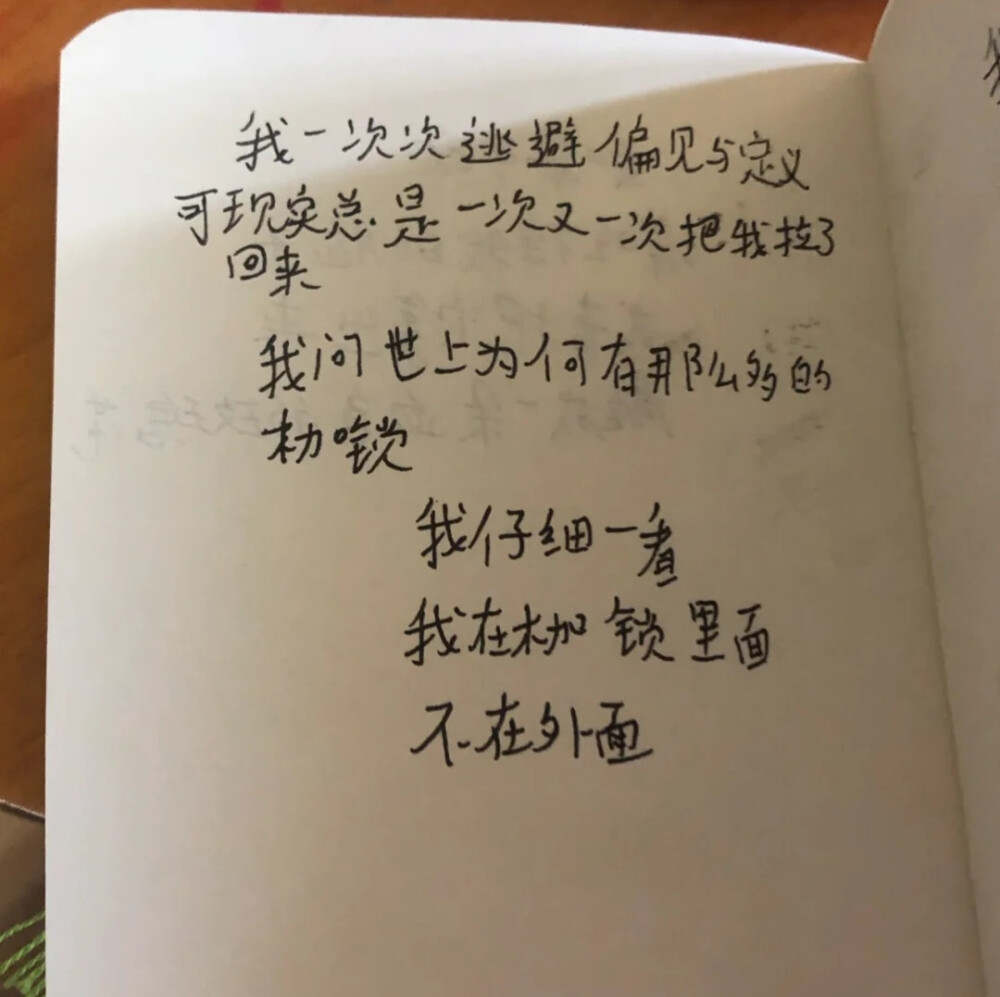 我一次次逃避偏见与定义
可现实总是一次又一次把我拉了
回来
我问世上为何有那么多的
枷锁
我仔细一看
我在枷锁里面
不在外面